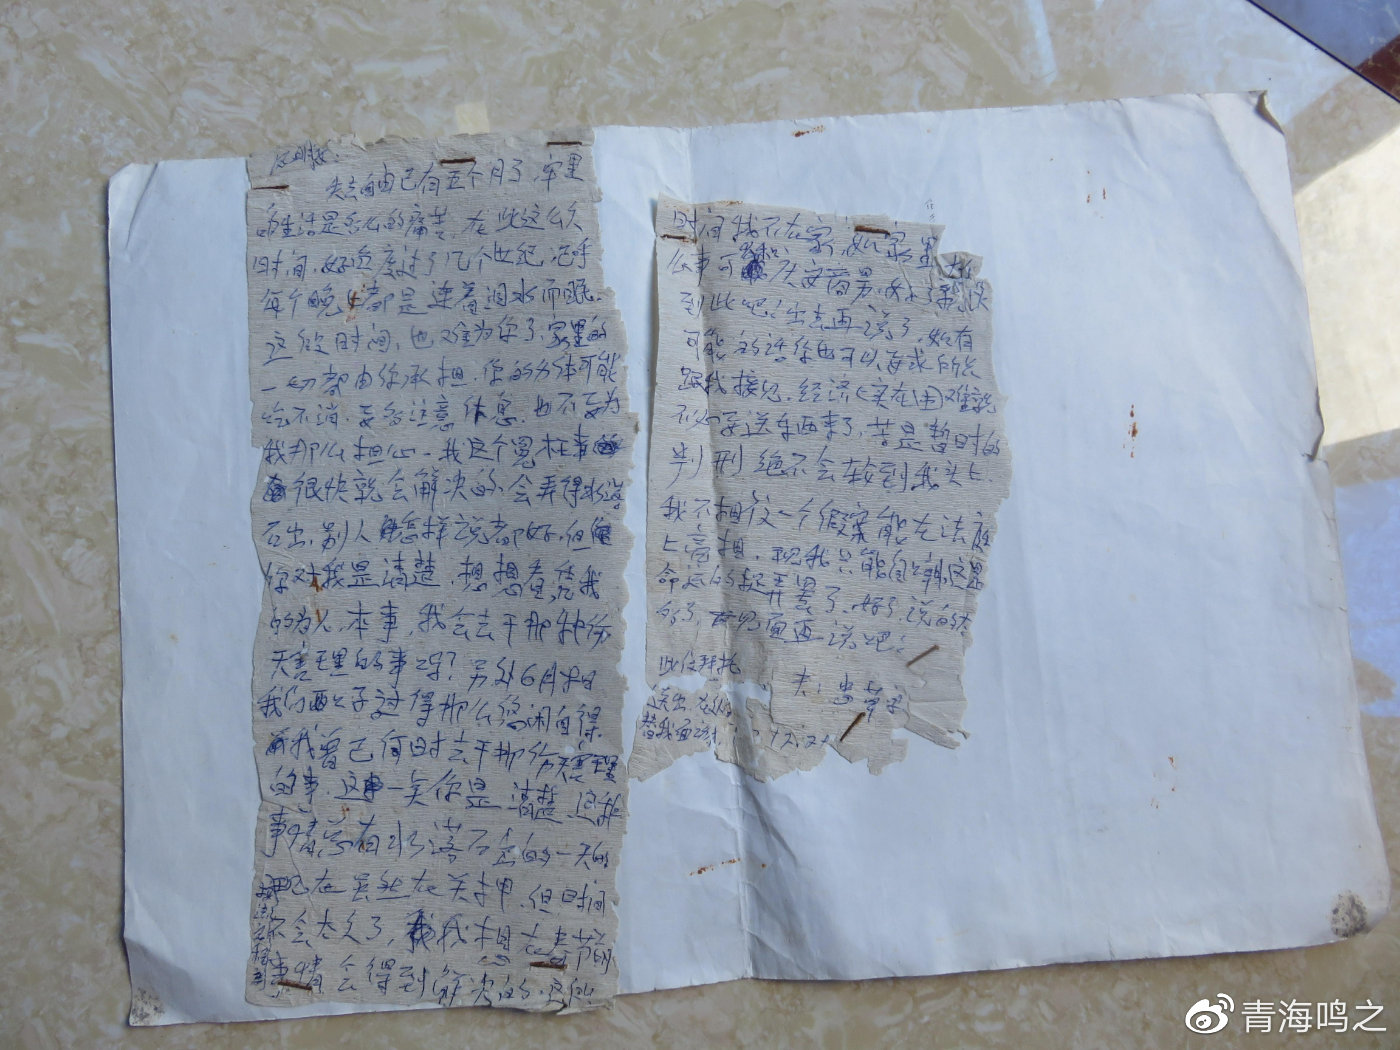 失去自由已有五个月了,牢里
的生活是多么的痛苦,在此这么久
时间,好像度过了几个世纪,
每个晚上都是连着泪水而眠.
这段时间,也难为你了,家里的
一切都由你承担,你的身体可能
吃不消,要多注意休息,也不要为
我那么担心.我这个冤枉事
很快就会解决的,会弄得水落
石出,别人怎样说都好,但
你对我是清楚,想想看,凭我
的为人,本事,我会去干那种伤
天害理的事吗?另外6月
我们两公子过得那么悠闲自得
我曾己何时去干那伤天害理
的事.这一关你是清楚,这种
事情总有水落石出的一天的
现在虽然在关押,但时间
不会太久了,我相
事情会得到解决的.
时间我不在家,如家里
么事可和 商量,
到此吧!出去再说了,如有
可能的话你也可以要求所长
跟我接见,经济实在困难就
不必要送东西来了,苦是暂时的
判刑绝不会转到我头上.
我不相信一个假案能在法庭
上亮相,现我只能自 这是
命运的捉弄罢了,好了,说的
的了, 面再说吧!
此信拜托
夫:
送出,
替我面谢!
12.2
青海鸣之